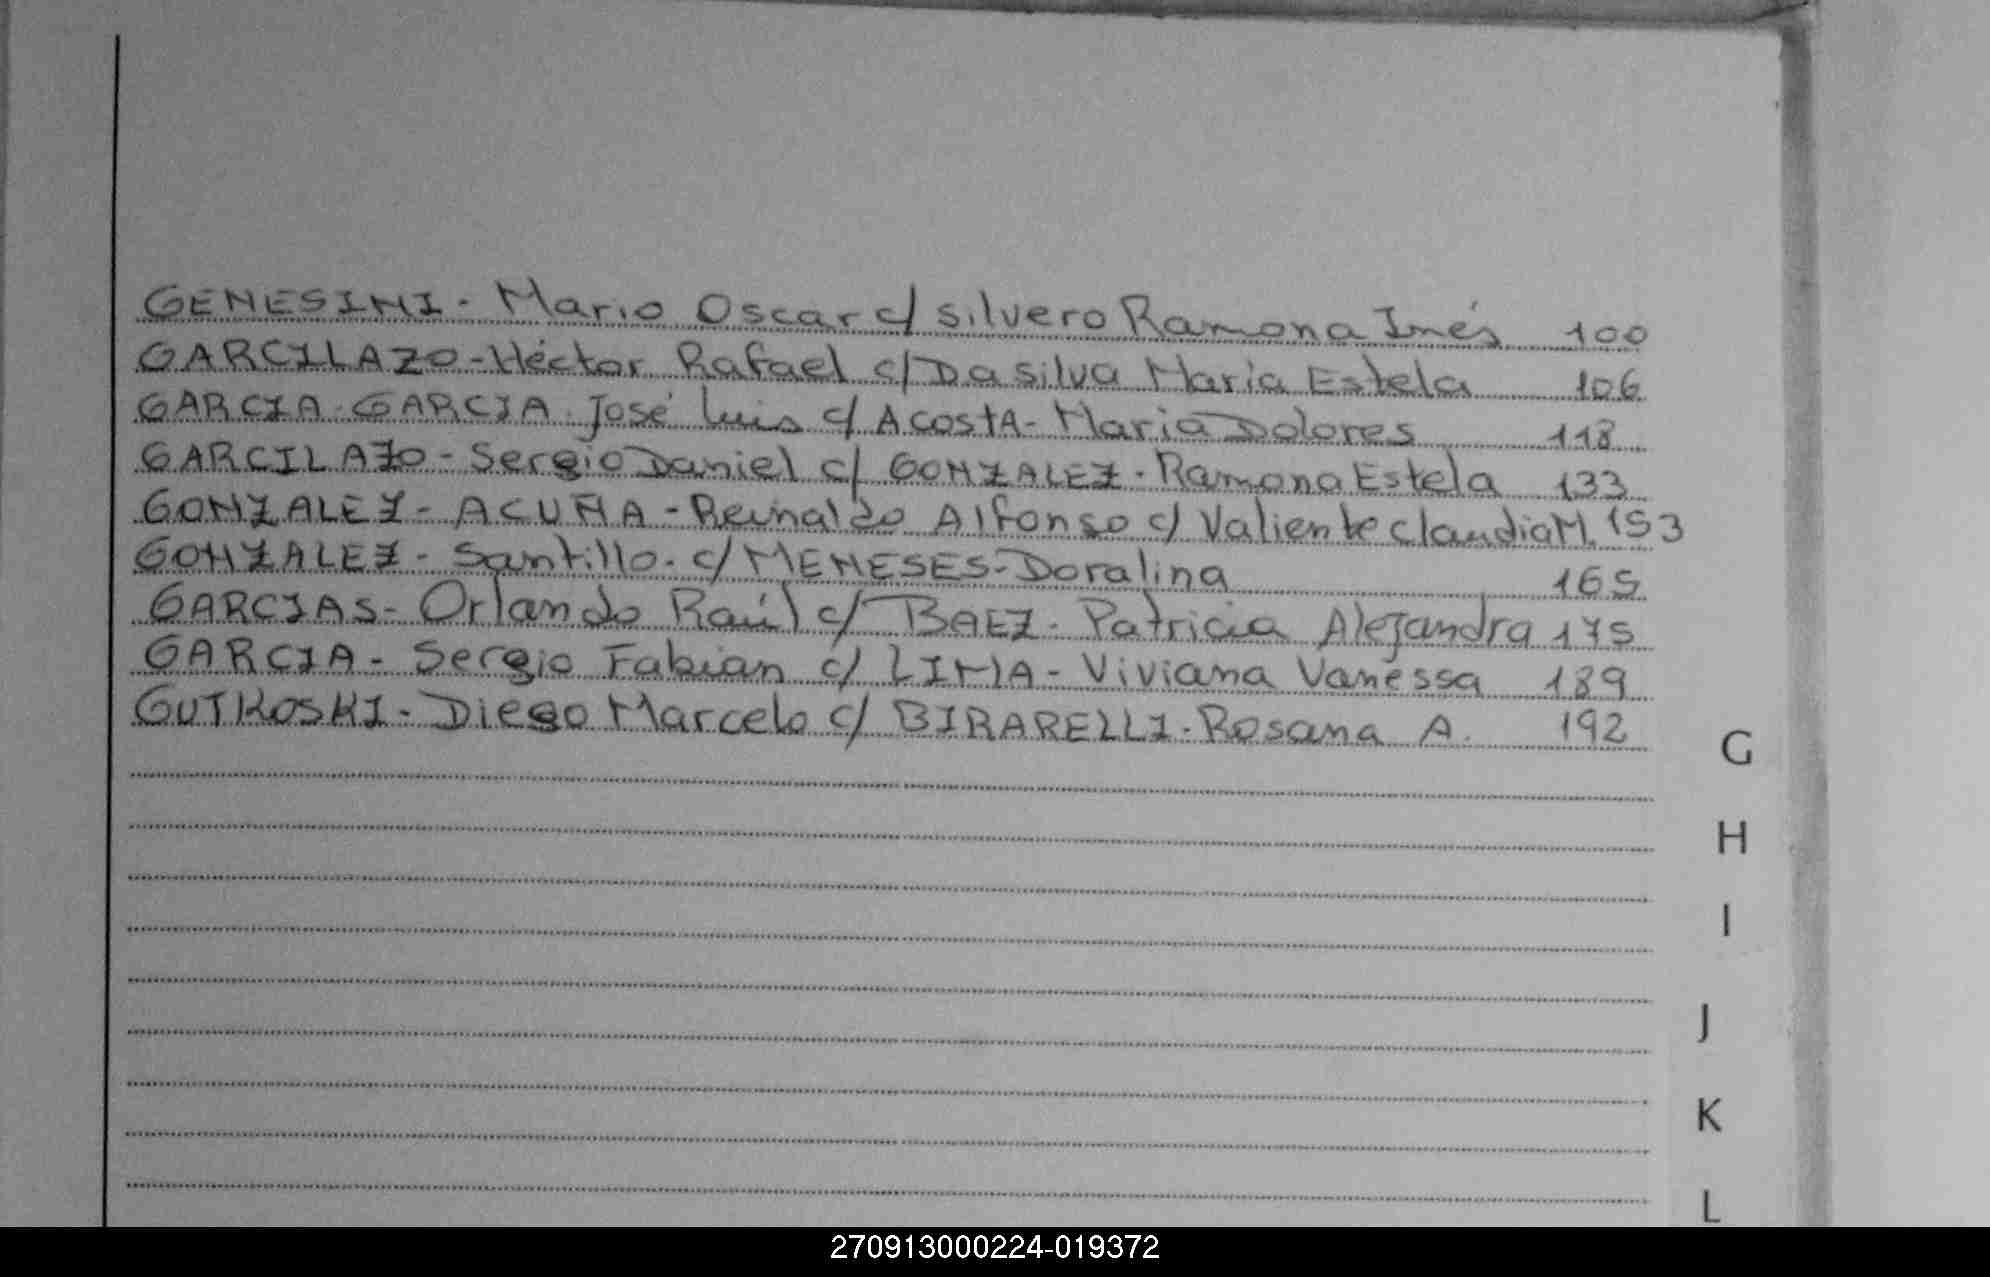 GENESINI - Mario Oscar c/ silvero Ramona Inés 100
GARCILAZO - Héctor Rafael c/ Da silva María Estela 106
GARCIA - GARCIA José Luis c/ ACostA - María Dolores 118
GARCILAZO - Sergio Daniel c/ GONZALEZ - Ramona Estela 133
GONZALEZ - ACUÑA - Reinaldo Alfonso c/ Valiente claudia M. 153
GONZALEZ - Santillo - c/ MENESES - Doralina 165
GARCIAS - Orlando Raúl c/ BAEZ - Patricia Alejandra 175
GARCIA - Sergio Fabian c/ LIMA - Viviana Vanessa 189
GUTKOSKI - Diego Marcelo c/ BIRARELLI - Rosana A. 192
G
H
I
J
K
L
270913000224-019372